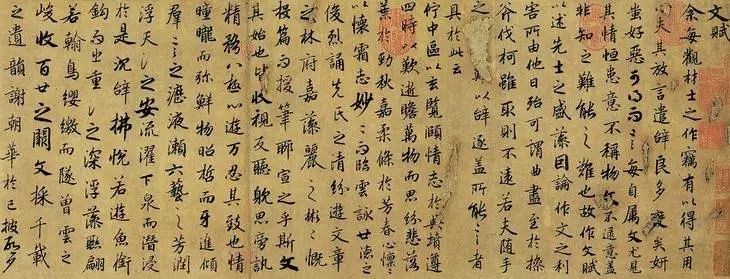 文賦
余每觀材士之作竊有以得其用
心夫其放言遣辭良多變矣妍
蚩好惡可得而言每自属文尤見
其情恒患意不稱物文不逮意蓋
非知之難能之難也故作文賦
以述先士之盛藻因論作文之利
害所由他日殆可謂曲盡至於操
斧伐柯雖取則不遠若夫随手
之以辭逐蓋所能言者
具於此云
佇中區以玄覽頤情志於典墳遵
四時以歎逝瞻萬物而思紛悲落
葉於勁秋嘉柔條於芳春心懍懍
以懷霜志妙妙而臨雲詠世德之
俊烈誦先民之清紛遊文章
之林府嘉藻麗之彬彬慨
投篇而援筆聊宣之乎斯文
其始也皆收視反聽耽思旁訊
精騖八極心遊万忍其致也情
曈曨而弥鮮物昭晢而互進傾
群言之瀝液漱六藝之芳潤
浮天淵之安流濯下泉而潛浸
於是沉辭拂悅若遊魚銜
鈎而出重淵之深浮藻聯翩
若翰鳥纓繳而墜曾雲之
峻收百世之闕文採千載
之遺韻謝朝華於已披啟夕